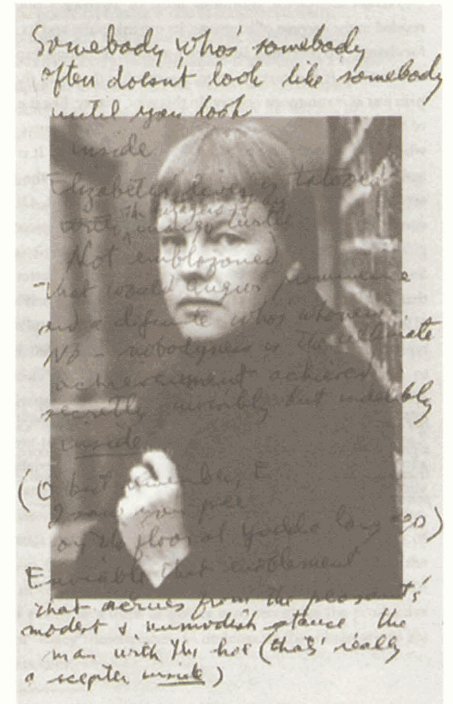 Somebody who's somebody
often doesn't look like somebody
until you look
inside
Elizabeth
with
Not emblazoned
That would augur prominence
and a definite who's
No - nobodyness is the ultimate
achievement achieved
secretly invisibly but indelibly
inside
(O but remember, E
I saw you pee
on the floor at Yaddo long ago)
Enviable that
that accrues from the peasant's
modest & unmodish stance the
man with the hoe (that's really
a scepter inside)